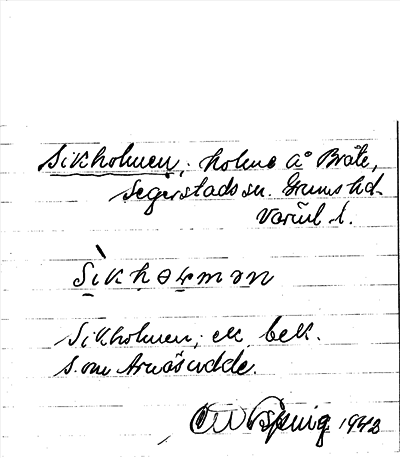 Sikholmen, holme å Bråte,
Segerstads sn. Grums hd.
Värml l.
Sìkhəɽmən
Sikholmen; ek. bek.
S. om Arnäsudde.
1942